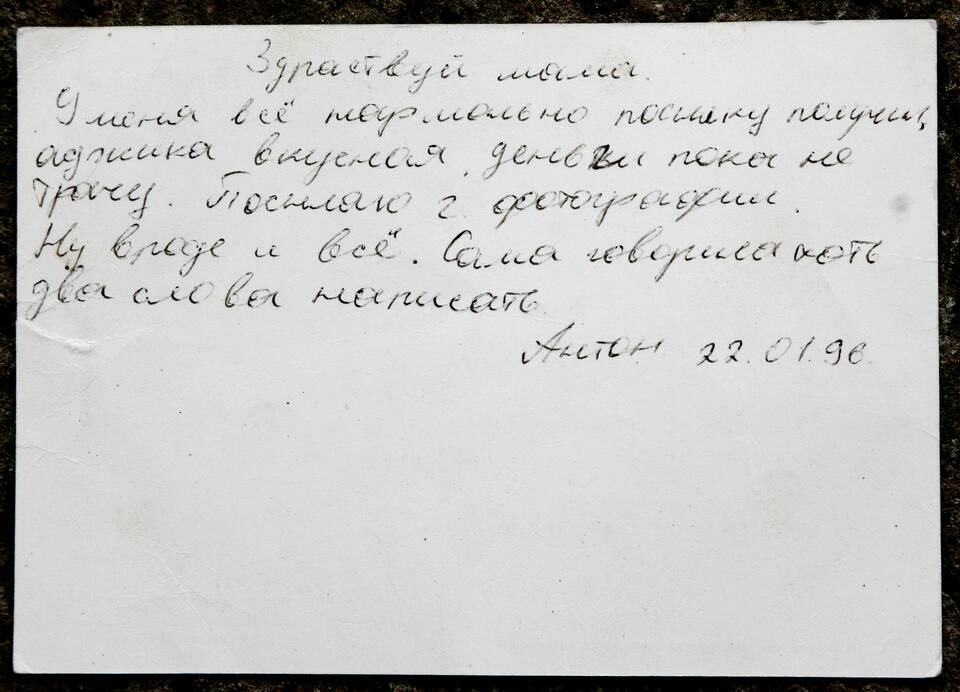 Здраствуй мама.
У меня всё нормально посылку получил,
аджика вкусная, деньги пока не
трачу. Посылаю 2 фотографии.
Ну вроде и всё. Сама говорила хоть
два слова написать.
Антон 22.01.96.